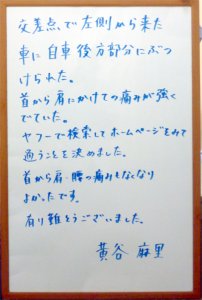 交差点で左側から来た
車に自車後方部分にぶつ
けられた。
首から肩にかけての痛みが強く
でていた。
ヤフーで検索してホームページをみて
通うことを決めました。
首から肩、腰の痛みもなくなり
よかったです。
有り難とうございました。
黄谷 麻里